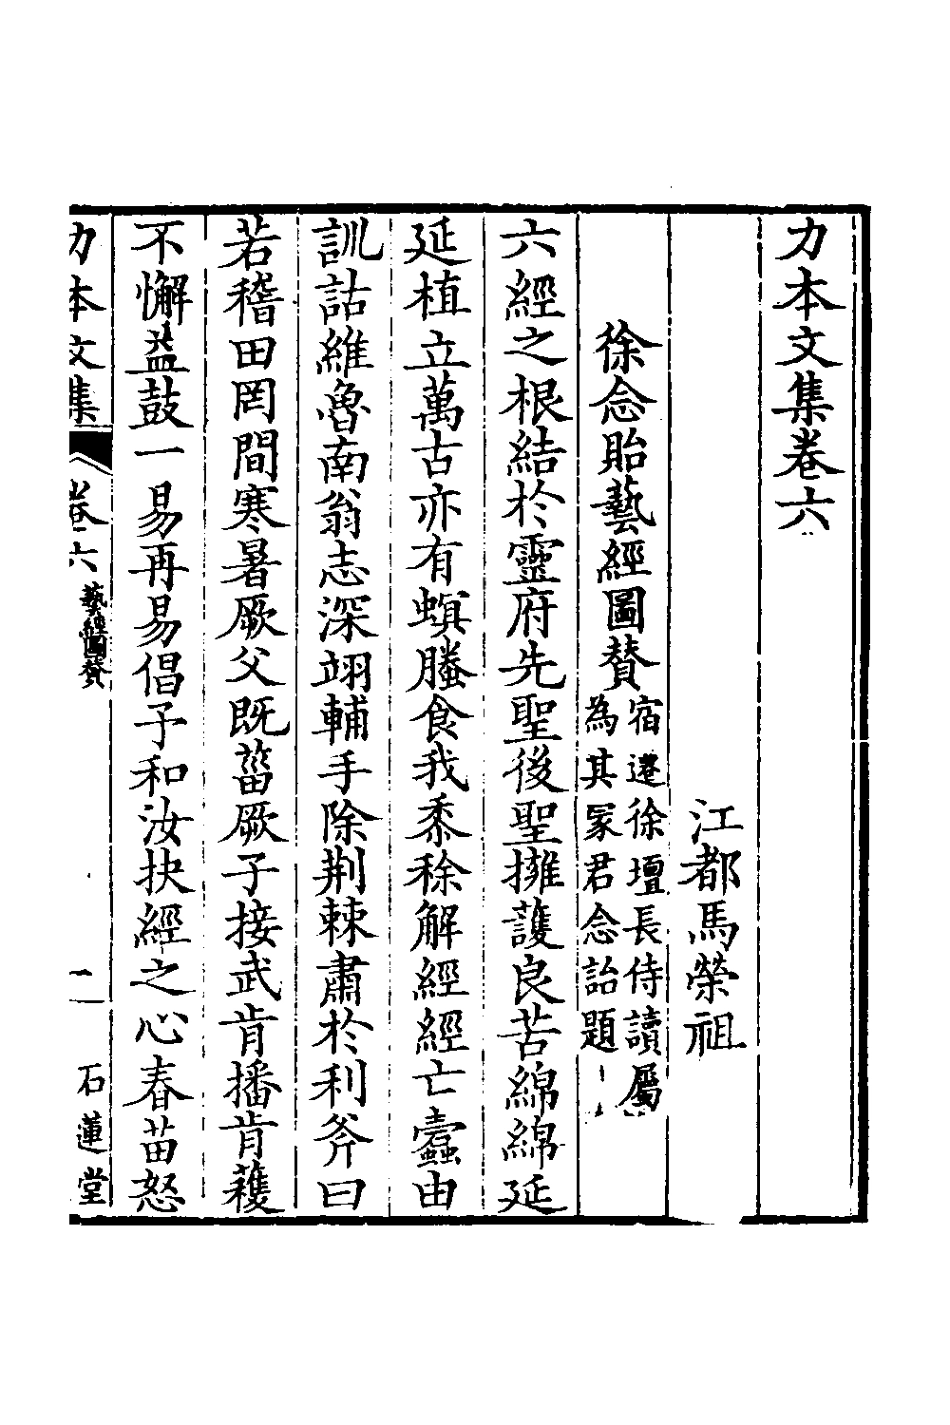 力本文集卷六
江都馬榮祖
徐念貽藝經圖賛
宿遷徐壇長侍讀屬
為其冢君念詒題
六經之根結於靈府先聖後聖擁護良苦綿綿延
延植立萬古亦有螟螣食我黍稌解經經亡蠧由
訓詁維魯南翁志深翊輔手除荆棘肅於利斧曰
若稽田罔間寒暑厥父既菑厥子接武肯播肯穫
不懈益鼓一易再易倡予和汝抉經之心春苗怒
力本文集
卷六
藝經圖賛
一
石蓮堂